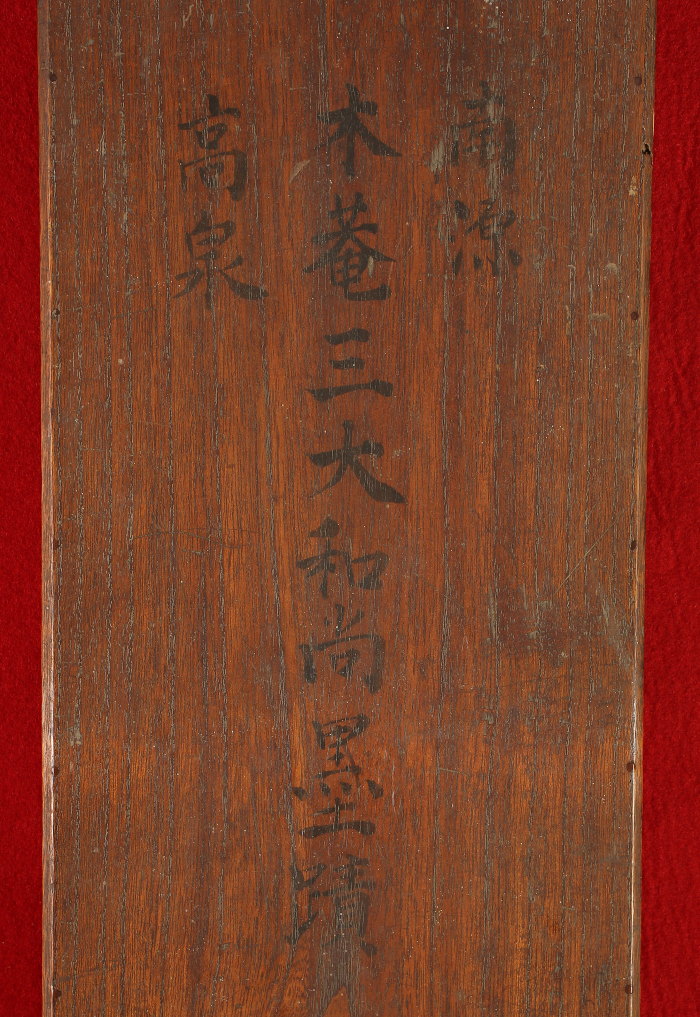 南源
木菴三大和尚墨蹟
高泉